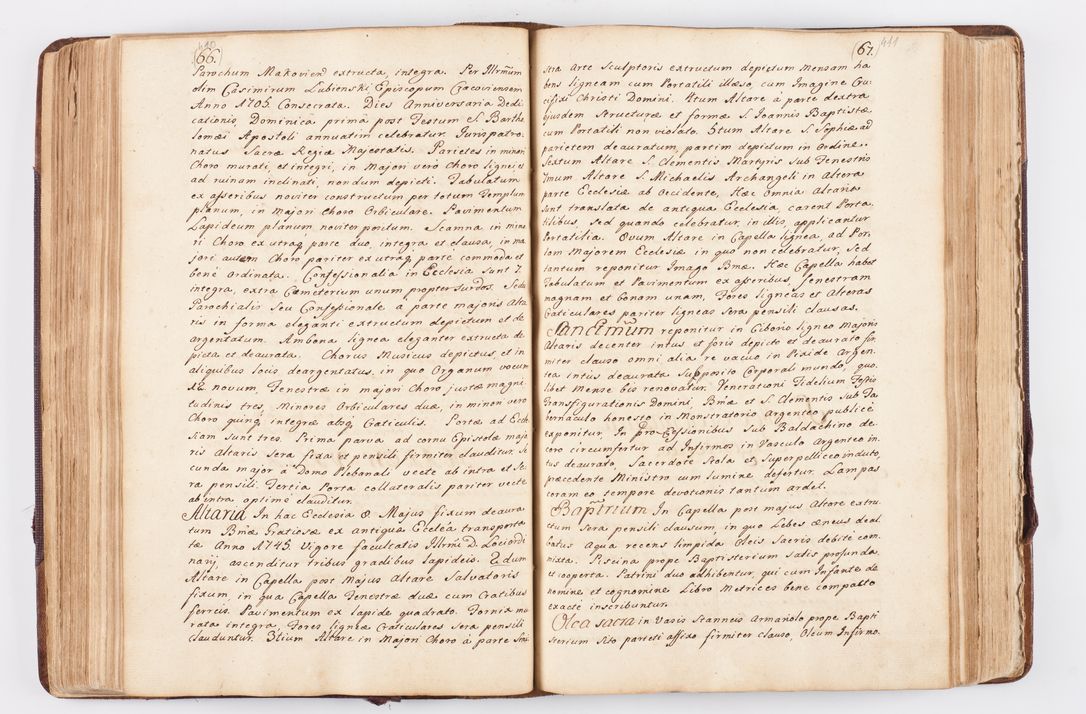 (66.) 410
Parochum Makoviens extructa, integra. Per Illrm̃um
olim Casimirum Lubienski Episcopum Cracoviensem
Anno 1705. Consecrata. Dies Anniversaria Dedi
cationis, Dominica prima post Festum S. Bartho
lomæi Apostoli annuatim celebratur. Juris patro
natus Sacræ Regiæ Majestatis. Parietes in minori
Choro murati, et integri, in Majori vero Choro lignei, et
ad ruinam inclinati, nondum depicti. Tabulatum
ex asseribus noviter constructum per totum Templum
planum, in Majori Choro Orbiculare. Pavimentum
Lapideum planum, noviter positum. Scamna in mino
ri Choro ex utraq parte duo, integra et clausa, in ma
jori autem Choro pariter ex utraq parte commoda et
bene ordinata. Confessionalia in Ecclesia sunt 7.
integra, extra Cæmeterium unum propter surdos. Sedes
Parochialis seu Confessionale a parte majoris Alta
ris in forma eleganti extructum depictum et de
argentatum. Ambona lignea eleganter extructa de
picta et deaurata. Chorus Musicus depictus, et in
aliquibus locis deargentatus, in quo Organum vocum
novum Fenestræ in majori Choro justæ magni
tudinis tres, Minores Orbiculares duæ, in minori vero
Choro quinq integræ absq Craticulis. Portæ ad Eccle
siam sunt tres. Prima parva ad cornu Epistolæ majo
ris Altaris sera fixa et pensili firmiter clauditur. Se
cunda major a Domo Plebanali vecte ab intra et Se
ra pensili. Tertia Porta collateralis pariter vecte
ab intra optime clauditur.
Altaria In hac Ecclesia 8. Majus fixum deaura
tum Bmæ Gratiosæ ex antiqua Ecclẽa transporta
tæ Anno 1745. Vigore facultatis Illrmi D. Lociordi
narij, ascenditur tribus gradibus lapideis. 2dum
Altare in Capella post Majus Altare Salvatoris
fixum, in qua Capella Fenestræ duæ cum Cratibus
ferreis. Pavimentum ex lapide quadrato. Fornix mu
rata integra, Fores ligneæ Craticulares Sera pensili
clauduntur. 3tium Altare in Majori Choro a parte Sini
(67.) 411
stra Arte Sculptoris extructum depictum Mensam ha
bens ligneam cum Portatili illæso, cum Imagine Cru
cifixi Christi Domini. 4tum Altare a parte dextra
ejusdem Structuræ et formæ S. Joannis Baptistæ
cum Portatili non violato. 5tum Altare S. Sophiæ ad
parietem deauratum, partim depictum in Ordine.
Sextum Altare S. Clementis Martyris sub Fenestris
7mum Altare S. Michaelis Archangeli in Altera
parte Ecclesiæ ab Occidente, Hæc omnia Altaria
sunt translata de antiqua Ecclesia, carent Porta
tilibus, Sed quando celebratur, in illis, applicantur
Portatilia. 8vum Altare in Capella lignea, ad Por
tam Majorem Ecclesiæ in quo non celebratur, Sed
tantum reponitur Imago Bmæ. Hæc Capella habet
Tabulatum et Pavimentum ex asseribus, fenestram
magnam et bonam unam, Fores ligneas et Alteras
Craticulares pariter ligneas sera pensili clausas.
Sanctm̃um reponitur in Ciborio ligneo Majoris
Altaris decenter intus et foris depicto et deaurato fir
miter clauso omni alia re vacuo in Pixide Argen
tea intus deaurata Supposito Corporali mundo, quo
libet Mense bis renovatur. Venerationi Fidelium Festis
Transfigurationis Domini, Bmæ et S. Clementis sub Ta
bernaculo honesto in Monstratorio Argenteo publice
exponitur. In pro-Cessionibus sub Baldachino de
coro circumfertur ad Infirmos in Vasculo Argenteo in
tus deaurato, Sacerdote Stola et Superpelliceo induto,
præcedente Ministro cum lumine, defertur. Lampas
coram eo tempore devotionis tantum ardet.
Bapt̃rium In Capella post majus Altare extru
ctum sera pensili clausum, in quo Lebes æneus deal
batus Aqua recens limpida Oleis Sacris debite com
mixta. Piscina prope Baptisterium satis profunda
et cooperta. Patrini duo adhibentur, qui cum Infante de
nomine et cognomine Libro Metrices bene compacto
exacte inscribuntur.
Olea sacra in Vasis Stanneis Armariolo prope Bapti
sterium sito parieti affixo firmiter clauso, Oleum Infirmo.